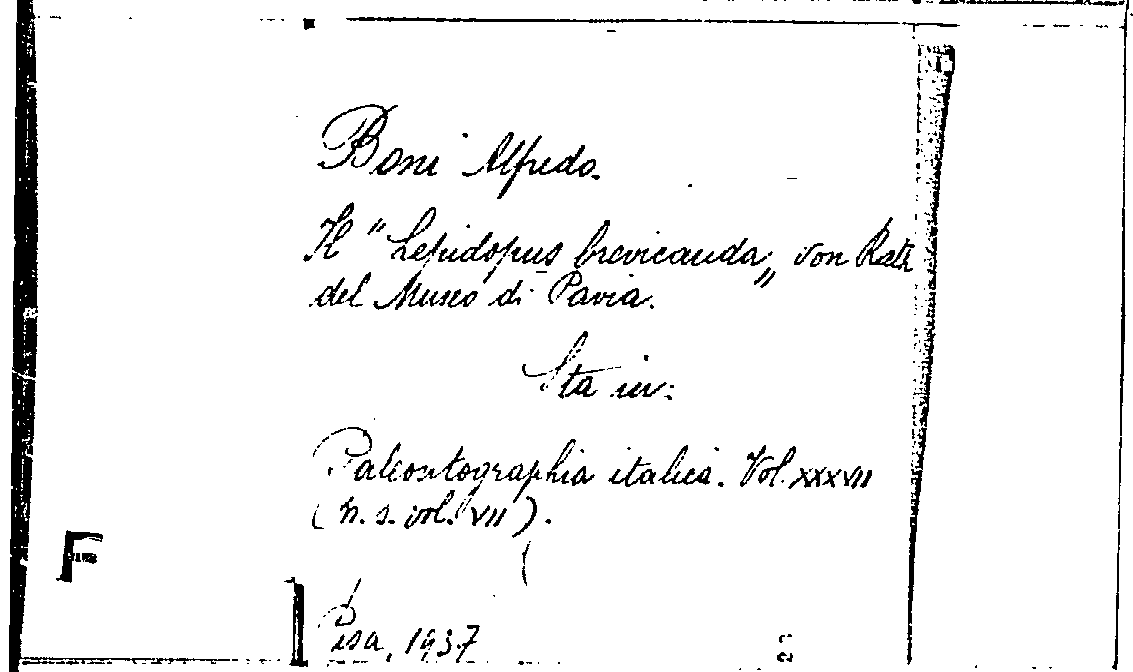 Boni Alfredo.
Il "Lepidopus brevicauda„ von Rath
del Museo di Pavia.
Sta in:
Paleontographia italica. Vol. XXXVII
(n. s. vol. VII).
Pisa, 1937
F